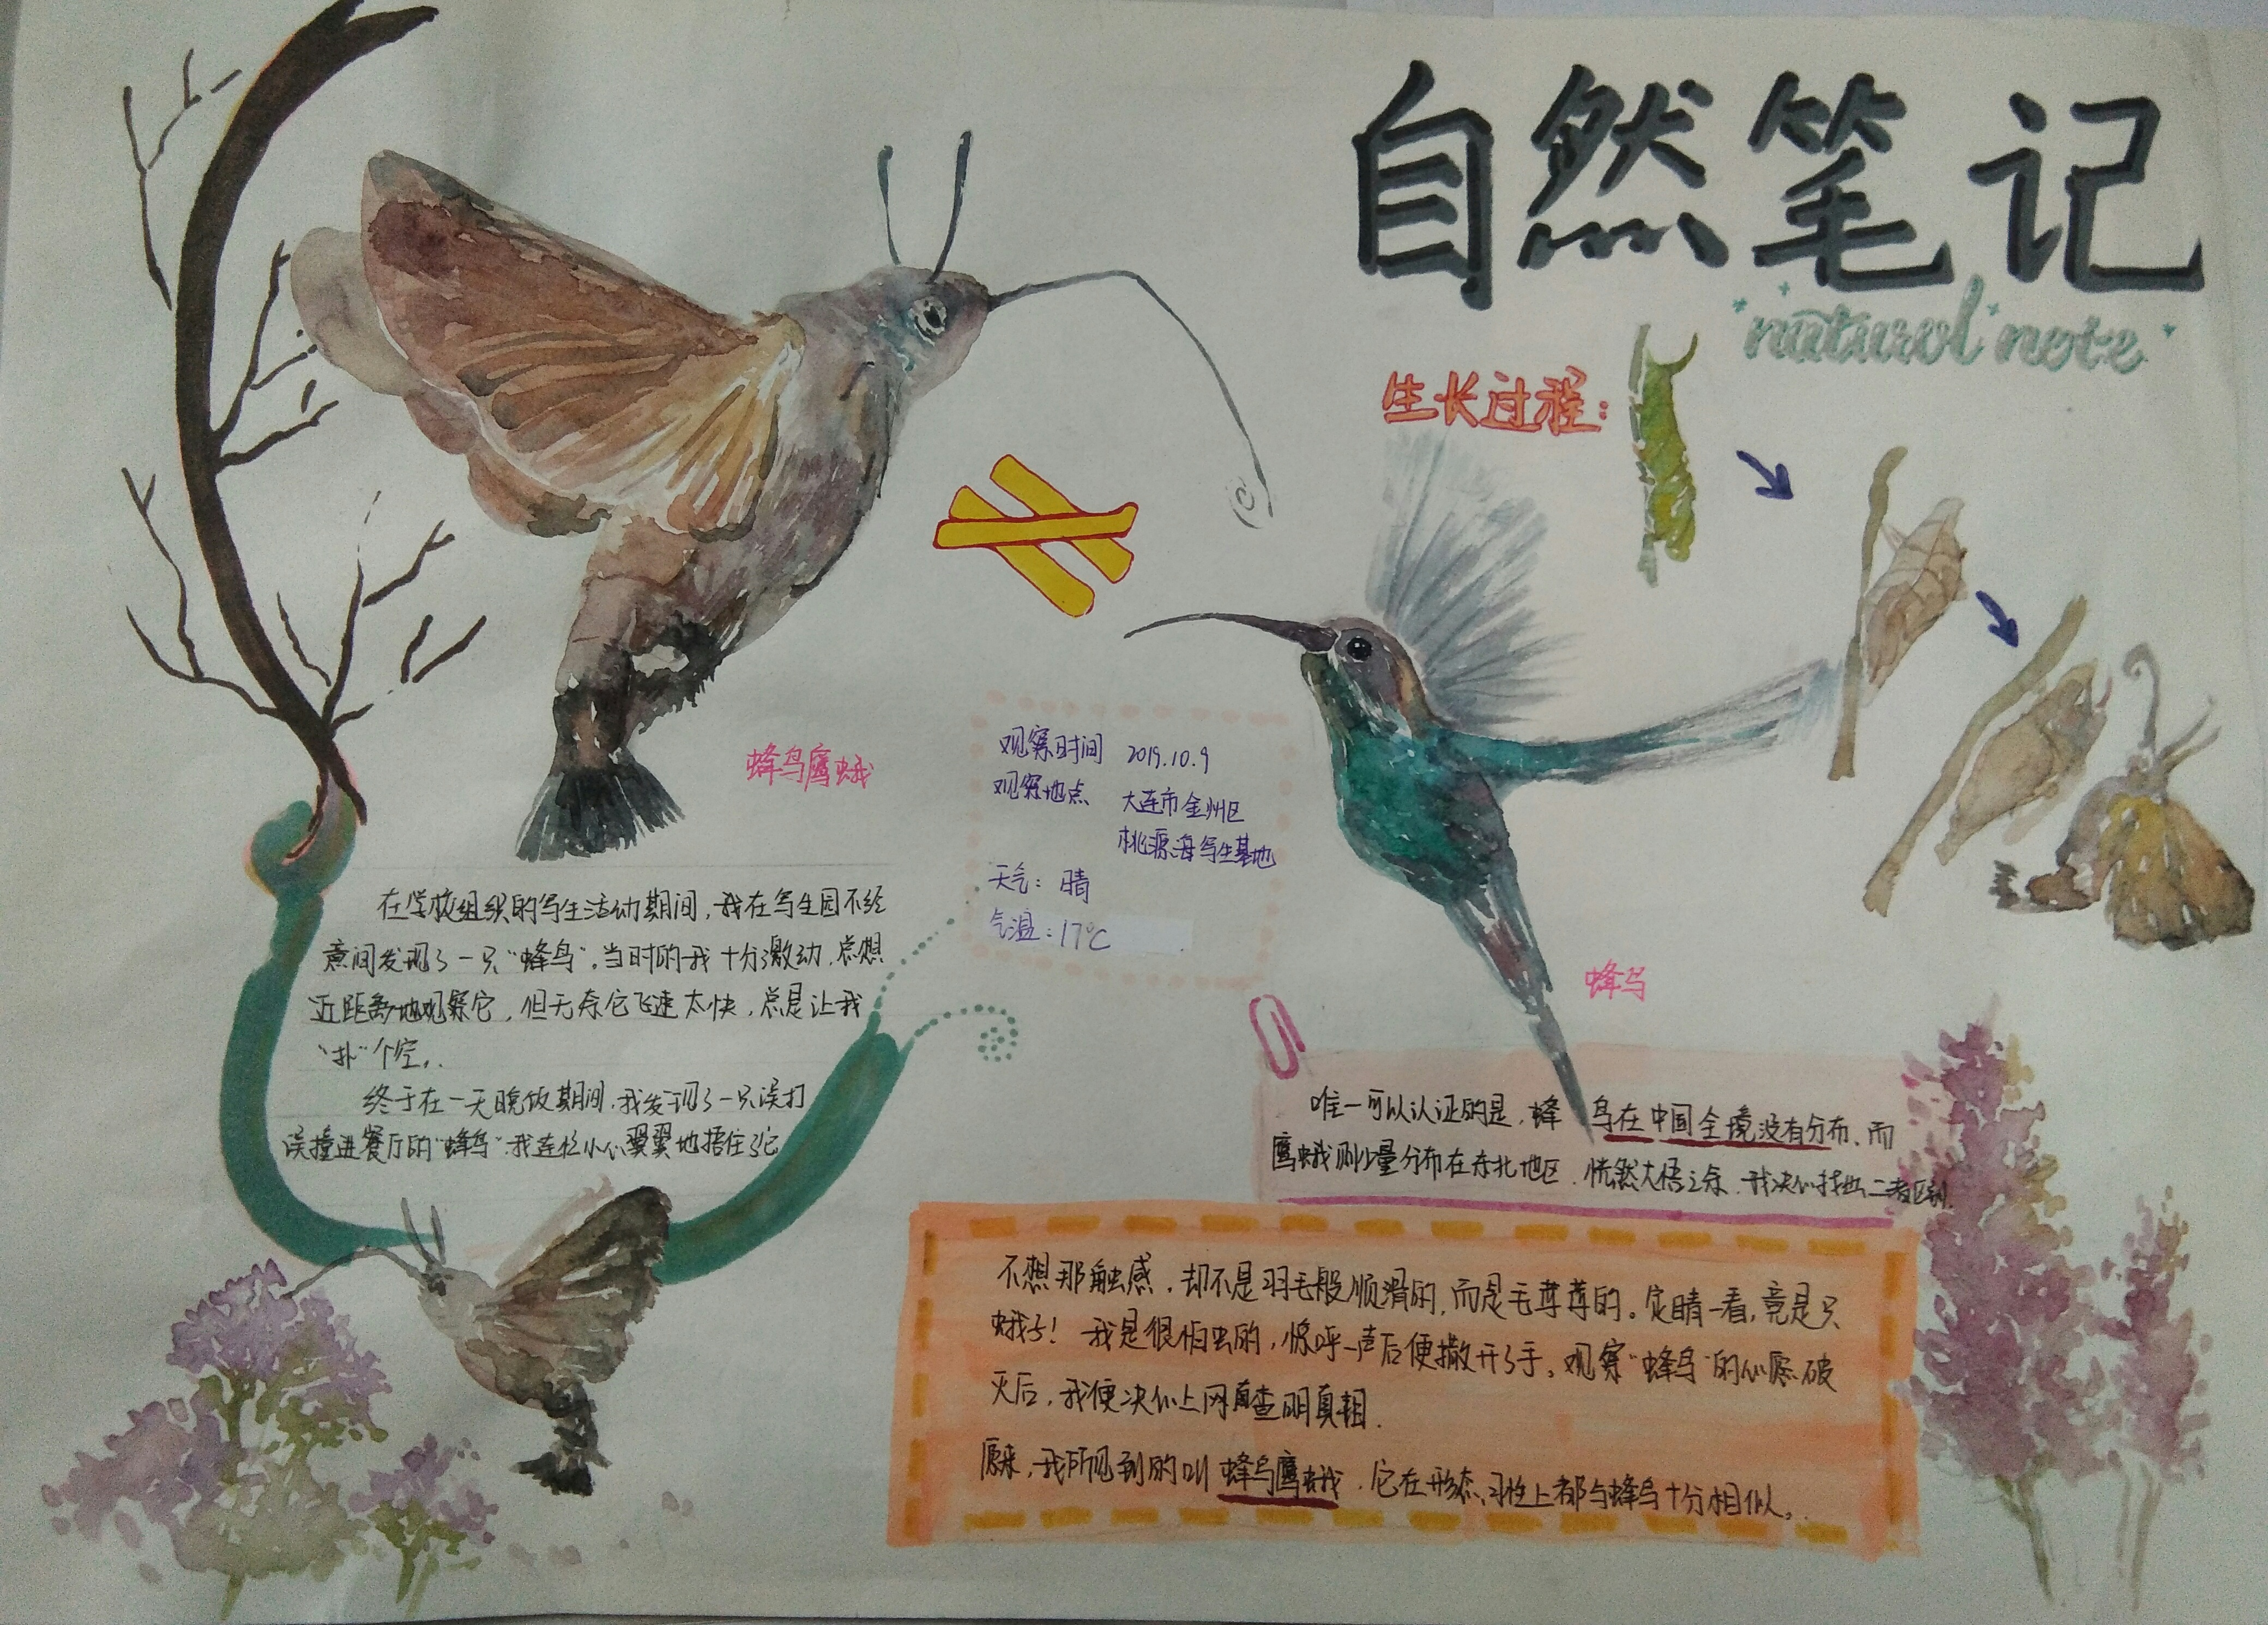 自然笔记
natural note
生长过程:
蜂鸟鹰蛾
观察时间 2019.10.9
观察地点 大连市金州区
桃源海写生基地
天气: 晴
气温: 17℃
蜂鸟
在学校组织的写生活动期间,我在写生园不经
意间发现了一只“蜂鸟”,当时的我十分激动,总想
近距离地观察它,但无奈它飞速太快,总是让我
“扑”个空。
终于在一天晚饭期间,我发现了一只误打
误撞进餐厅的“蜂鸟”,我连忙小心翼翼地捂住了它
不想那触感,却不是羽毛般顺滑的,而是毛茸茸的。定睛一看,竟是只
蛾子!我是很怕虫的,惊呼一声后便撒开了手。观察“蜂鸟”的心愿破
灭后,我便决心上网查明真相.
原来,我所见到的叫蜂鸟鹰蛾,它在形态、习性上都与蜂鸟十分相似。
唯一可以认证的是,蜂鸟在中国全境没有分布,而
鹰蛾则少量分布在东北地区.恍然大悟之余,我决心找出二者区别.